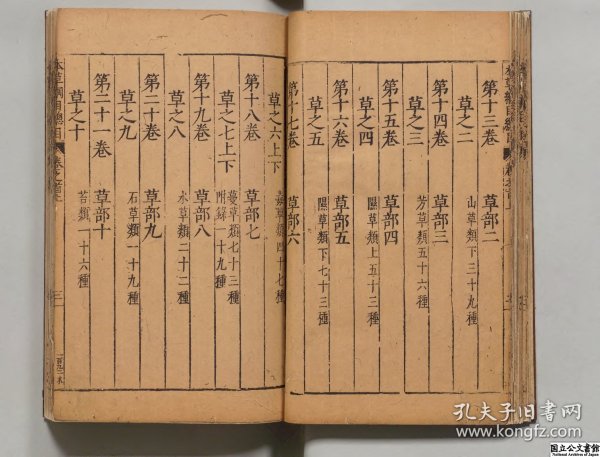 第十三卷 草部二
草之二 山草類下三十九種
第十四卷 草部三
草之三 芳草類五十六種
第十五卷 草部四
草之四 隰草類上五十三種
第十六卷 草部五
草之五 隰草類下七十三種
第十七卷 草部六
草之六上下 毒草類四十七種
第十八卷 草部七
草之七上下 蔓草類七十三種
附錄一十九種
第十九卷 草部八
草之八 水草類二十二種
第二十卷 草部九
草之九 石草類一十九種
第二十一卷 草部十
草之十 苔類一十六種
本草綱目總目
三
孔夫子旧书网
www.kongfz.com
国立公文書館
National Archives of Japan